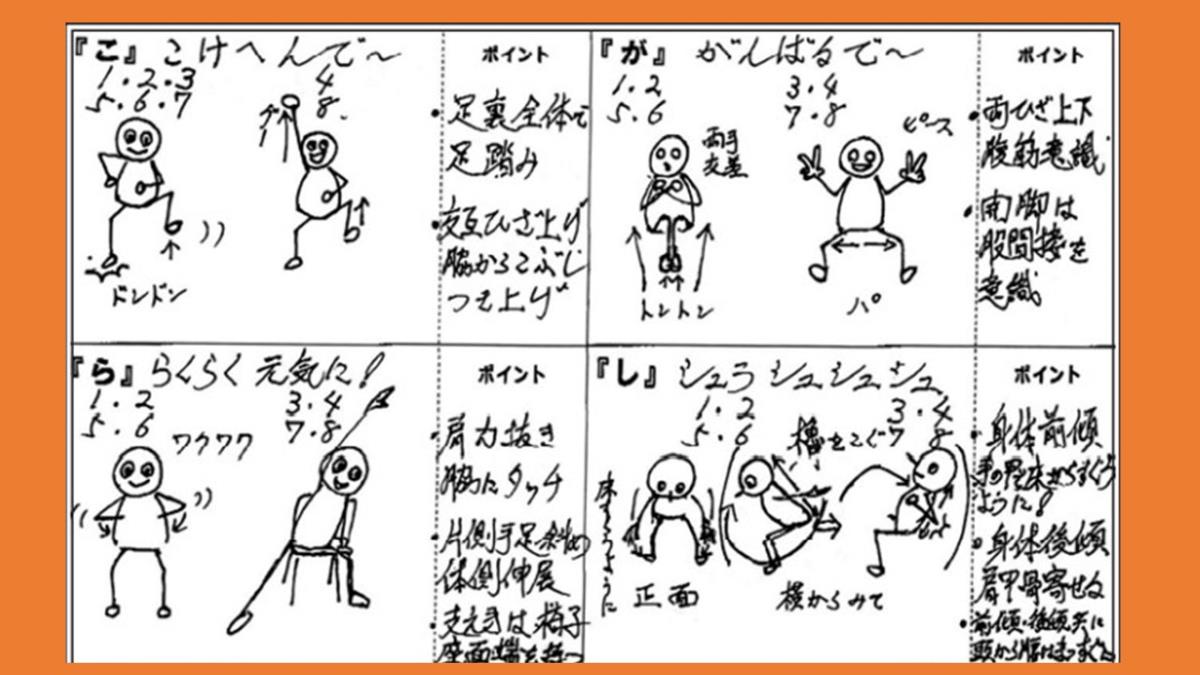 『こ』 こけへんで〜
1・2・3
5・6・7
4
8
グー
ドンドン
ポイント
・足裏全体で
足踏み
・交互ひざ上げ
脇からこぶし
つき上げ
『が』 がんばるで〜
1・2
5・6
3・4
7・8
両手
交差
ピース
トントン
パ
ポイント
・両ひざ上下
腹筋意識
・開脚は
股間接を
意識
『ら』 らくらく 元気に!
1・2
5・6
3・4
7・8
ワクワク
ポイント
・肩力抜き
脇にタッチ
・片側手足斜め
体側伸展
・支え手は椅子
座面端を持つ
『し』 シュラ シュシュシュ
1・2
5・6
3・4
7 8
櫓をこぐ
正面
横からみて
ポイント
・身体前傾
ように!
・身体後傾
肩甲骨寄せる
・前傾・後傾共に
頭から腰はまっすぐ